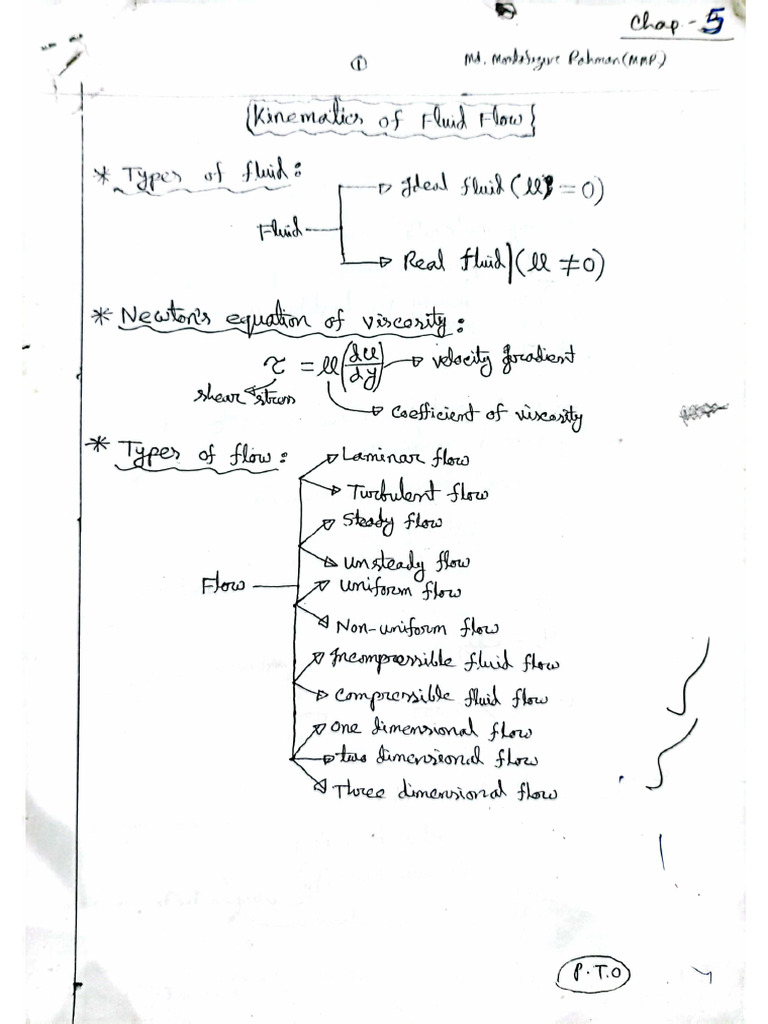 Chap - 5
①
Md. Rahman (MMP)
Kinematics of Fluid Flow
* Types of fluid:
Ideal fluid (μ = 0)
Fluid
Real fluid (μ ≠ 0)
* Newton's equation of viscosity:
τ = μ (du/dy) velocity gradient
shear stress
coefficient of viscosity
* Types of flow:
Laminar flow
Turbulent flow
Steady flow
unsteady flow
Flow
uniform flow
Non-uniform flow
Incompressible fluid flow
compressible fluid flow
one dimensional flow
two dimensional flow
Three dimensional flow
P.T.O